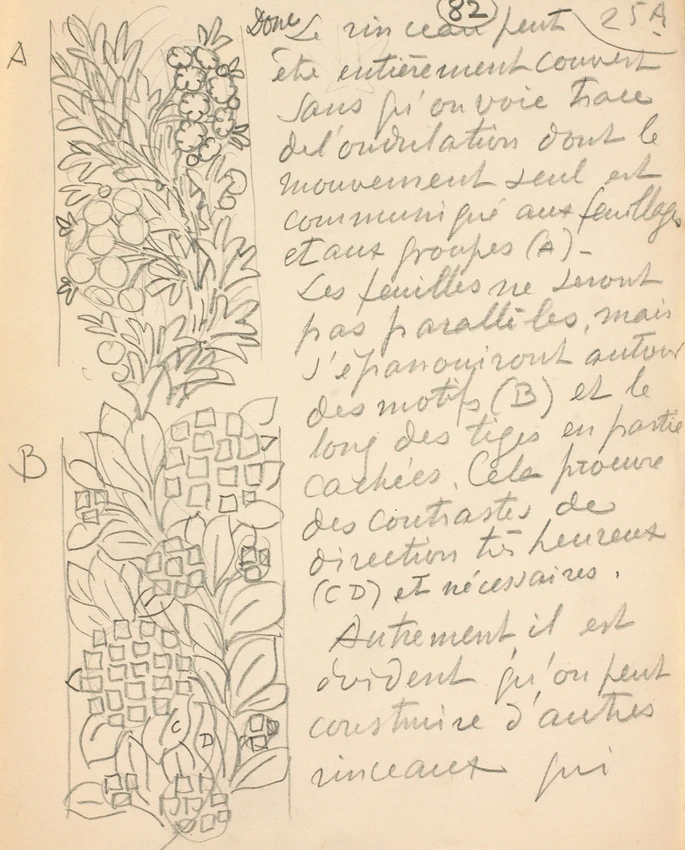 82
25A
Donc Le rinceau peut
être entièrement couvert
sans qu'on voie trace
de l'ondulation dont le
mouvement seul est
communiqué aux feuillages
et aux groupes (A) -
Les feuilles ne seront
pas parallèles, mais
s'épanouiront autour
des motifs (B) et le
long des tiges en partie
cachées. Cela procure
des contrastes de
direction très heureux
(CD) et nécessaires.
Autrement il est
évident qu'on peut
construire d'autres
rinceaux qui
A
B
C
D